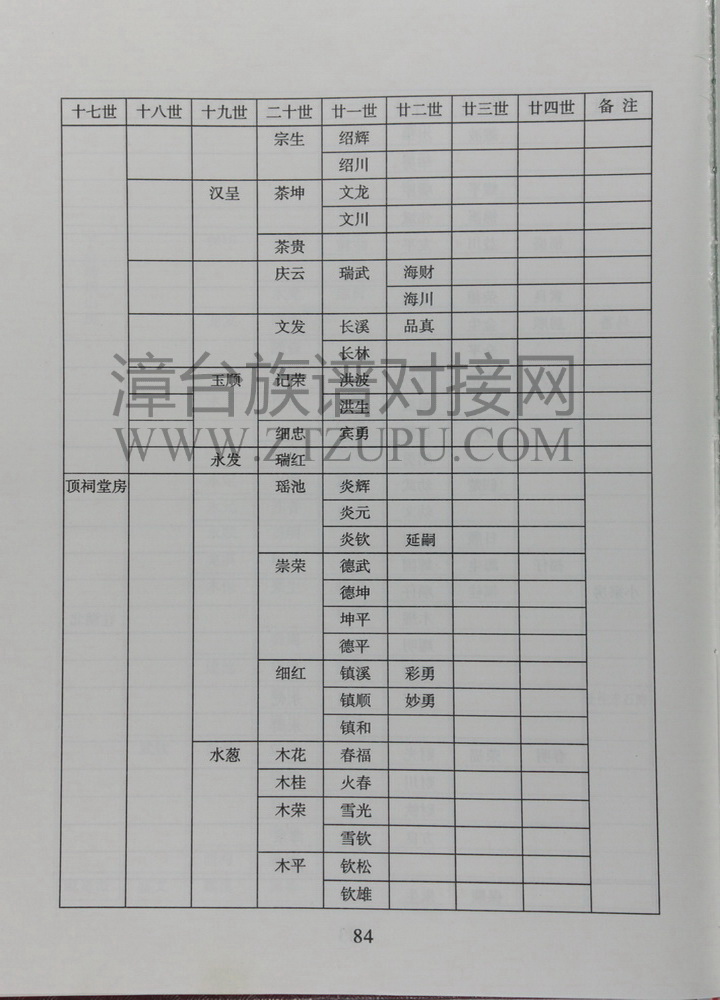 十七世 十八世 十九世 二十世 廿一世 廿二世 廿三世 廿四世 备注
宗生 绍辉
绍川
汉呈 茶坤 文龙
文川
茶贵
庆云 瑞武 海财
海川
文发 长溪 品真
长林
玉顺 记荣 洪波
洪生
细忠 宾勇
永发 瑞红
顶祠堂房 瑶池 炎辉
炎元
炎钦 延嗣
崇荣 德武
德坤
坤平
德平
细红 镇溪 彩勇
镇顺 妙勇
镇和
水葱 木花 春福
木桂 火春
木荣 雪光
雪钦
木平 钦松
钦雄
84
漳台族谱对接网
WWW.ZTZUPU.COM